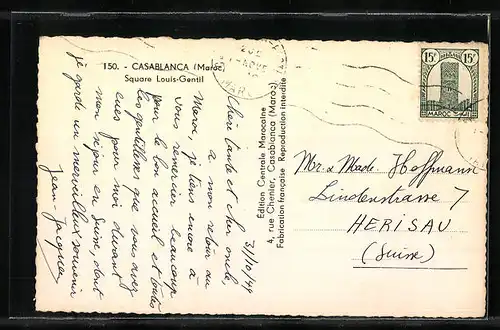 150. - CASABLANCA (Maroc)
Square Louis-Gentil
31/10/49
Chère tante et cher oncle,
a mon retour du
Maroc, je tiens encore à
vous remercier beaucoup
pour le bon accueil et toutes
les gentillesses que vous avez
eues pour moi durant
mon séjour en Suisse, dont
je garde un merveilleux souvenir
Jean-Jacques
Édition Centrale Marocaine
4, rue Chenier, Casablanca (Maroc)
Fabrication française Reproduction interdite
15F 15F
MAROC
Mr. & Made. Hoffmann
Lindenstrasse 7
HERISAU
(Suisse)